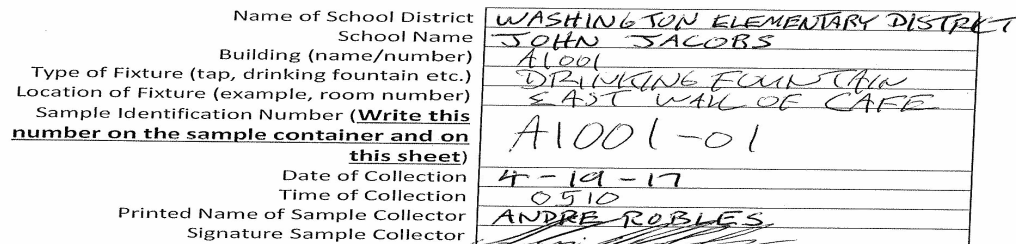 Name of School District WASHINGTON ELEMENTARY DISTRICT
School Name JOHN JACOBS
Building (name/number) A1001
Type of Fixture (tap, drinking fountain etc.) DRINKING FOUNTAIN
Location of Fixture (example, room number) EAST WALL OF CAFE
Sample Identification Number (Write this
number on the sample container and on A1001-01
this sheet)
Date of Collection 4-19-17
Time of Collection 0510
Printed Name of Sample Collector ANDRE ROBLES
Signature Sample Collector